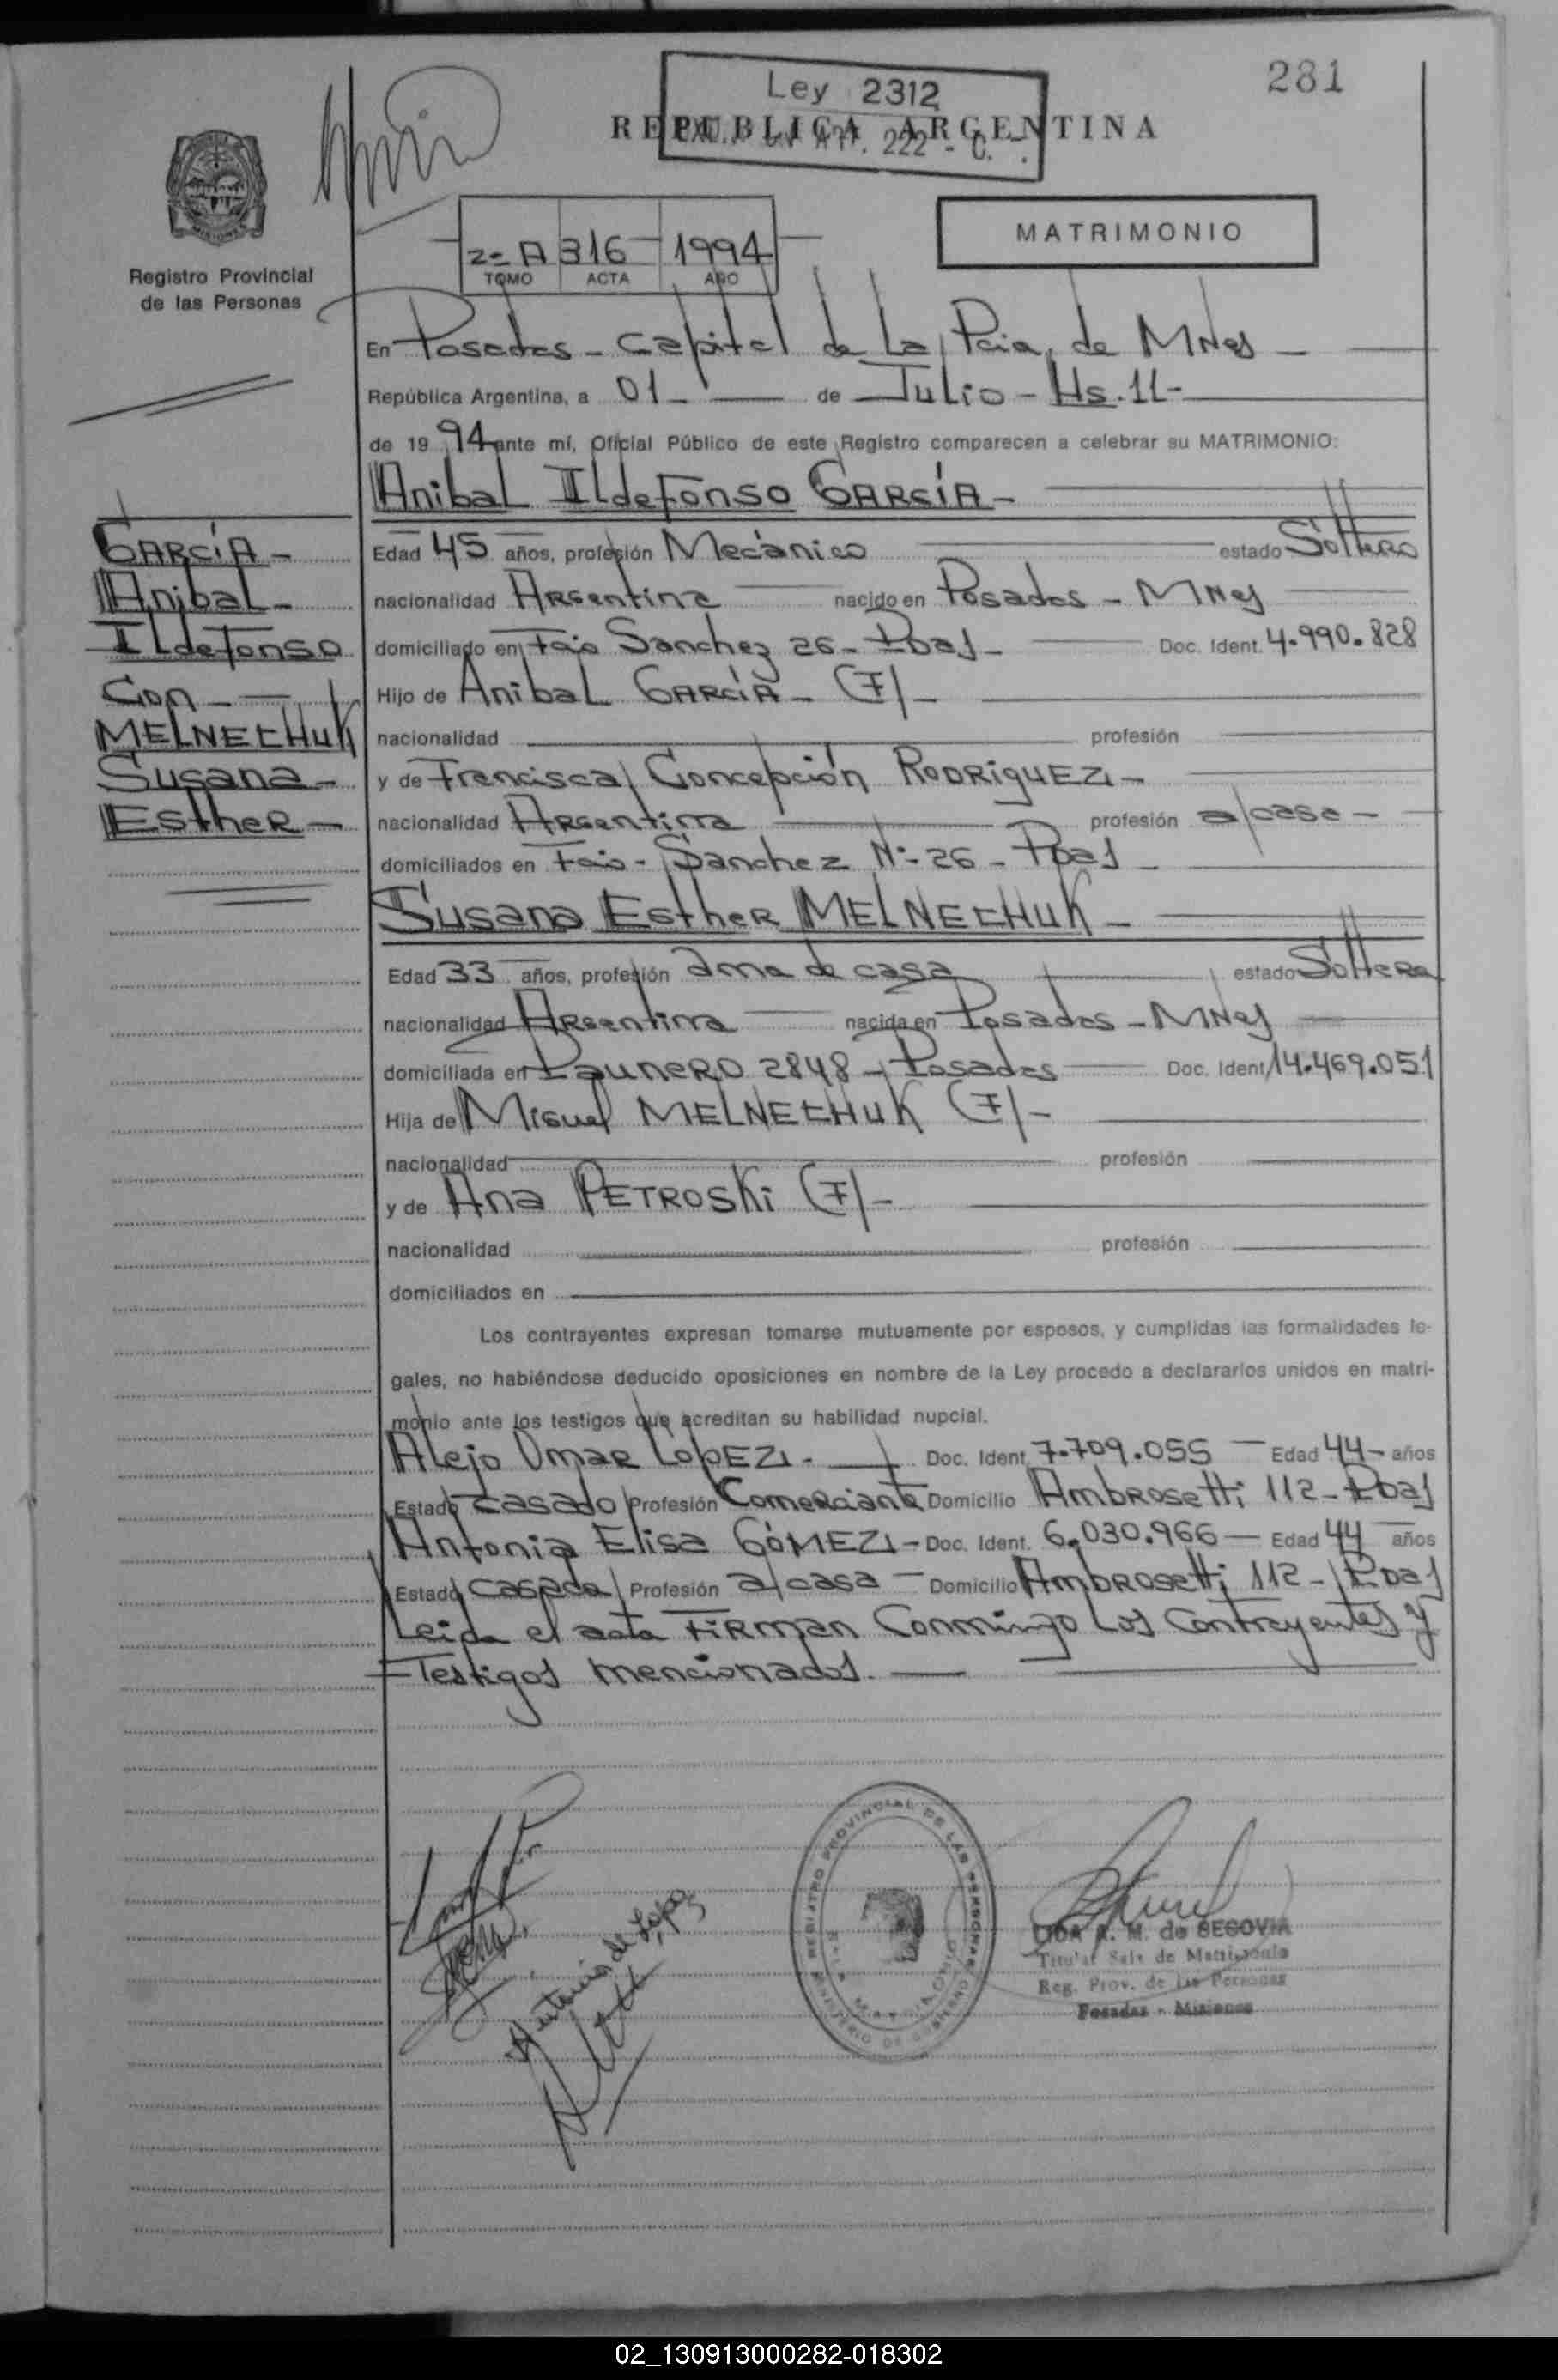 281
Ley 2312
REPUBLICA ARGENTINA
222 - C.
MISIONES
Registro Provincial
de las Personas
2= A 316 1994
TOMO ACTA AÑO
MATRIMONIO
En Posadas - Capital de La Pcia, de MNes -
República Argentina, a 01 - de Julio - Hs. 11 -
de 19 94 ante mí, Oficial Público de este Registro comparecen a celebrar su MATRIMONIO:
Anibal Ildefonso GARCÍA -
GARCÍA -
Anibal -
Ildefonso
Con -
MELNECHUK
Susana -
Esther -
Edad 45 años, profesión Mecánico estado Soltero
nacionalidad Argentina nacido en Posadas - MNes
domiciliado en Fco Sanchez 26 - Pdas - Doc. Ident. 4.990.828
Hijo de Anibal GARCÍA - (F) -
nacionalidad profesión
y de Francisca Concepción RODRIGUEZ -
nacionalidad Argentina profesión a/casa -
domiciliados en Fco - Sanchez Nº 26 - Pdas -
Susana Esther MELNECHUK -
Edad 33 años, profesión ama de casa estado Soltera
nacionalidad Argentina nacida en Posadas - MNes
domiciliada en Paunero 2848 - Posadas Doc. Ident. 14.469.051
Hija de Miguel MELNECHUK (F) -
nacionalidad profesión
y de Ana PETROSKi (F) -
nacionalidad profesión
domiciliados en
Los contrayentes expresan tomarse mutuamente por esposos, y cumplidas las formalidades le-
gales, no habiéndose deducido oposiciones en nombre de la Ley procedo a declararlos unidos en matri-
monio ante los testigos que acreditan su habilidad nupcial.
Alejo Omar LópEZ - Doc. Ident. 7.709.055 - Edad 44 - años
Estado Casado Profesión Comerciante Domicilio Ambrosetti 112 - Pdas
Antonia Elisa GÓMEZ - Doc. Ident. 6.030.966 - Edad 44 años
Estado Casada Profesión a/casa - Domicilio Ambrosetti 112 - Pdas
Leida el acta FiRman Conmingo Los Contrayentes y
Testigos mencionados. -
Antonia de López
REGISTRO PROVINCIAL DE LAS PERSONAS
LIDA A. M. de SEGOVIA
Titular Sala de Matrimonio
Reg. Prov. de las Personas
Posadas - Misiones
02_130913000282-018302